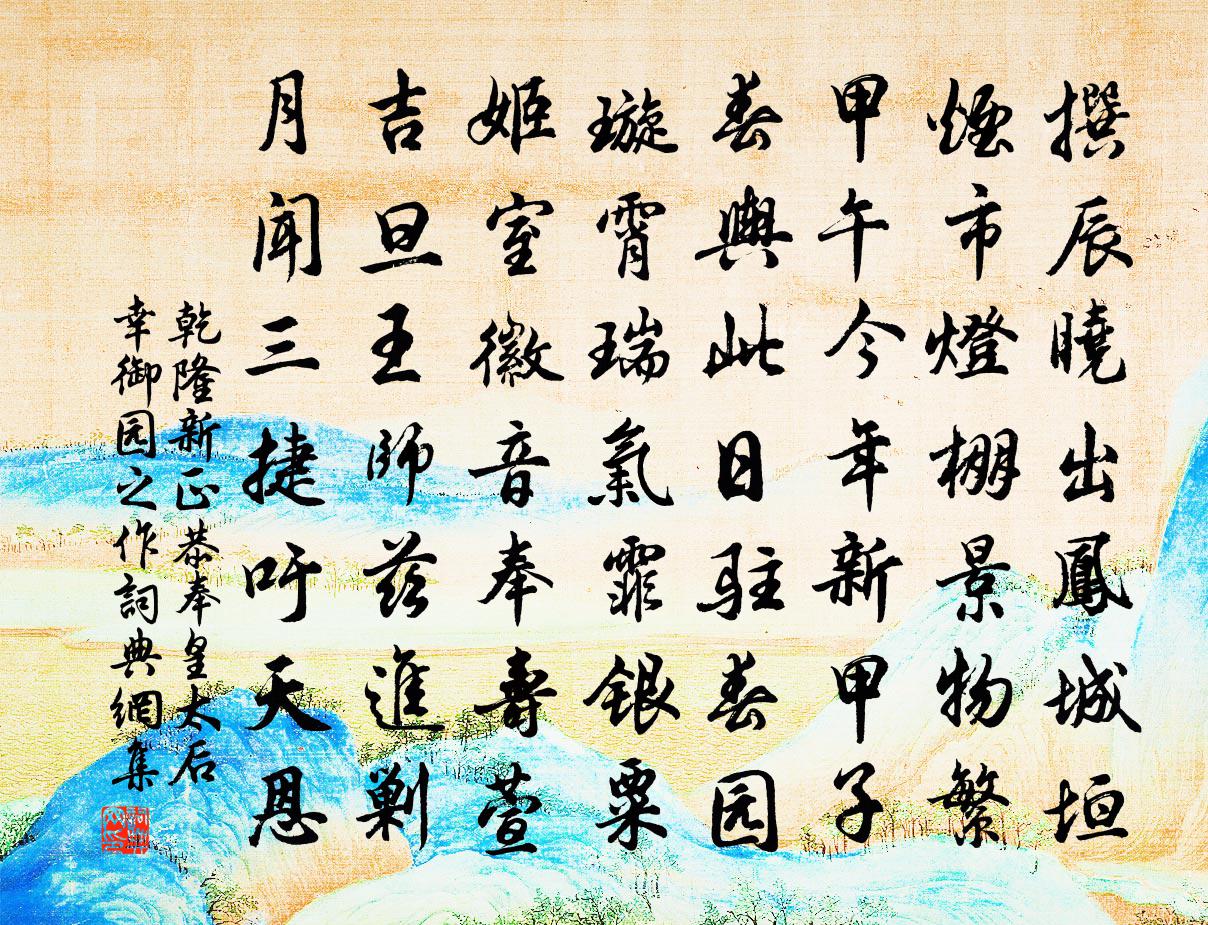 撰辰曉出鳳城垣
煙市燈棚景物繁
甲午今年新甲子
春輿此日駐春园
璇霄瑞氣霏銀粟
姬室徽音奉壽萱
吉旦王師茲進剿
月聞三捷吁天恩
乾隆新正恭奉皇太后
幸御园之作詞典網集